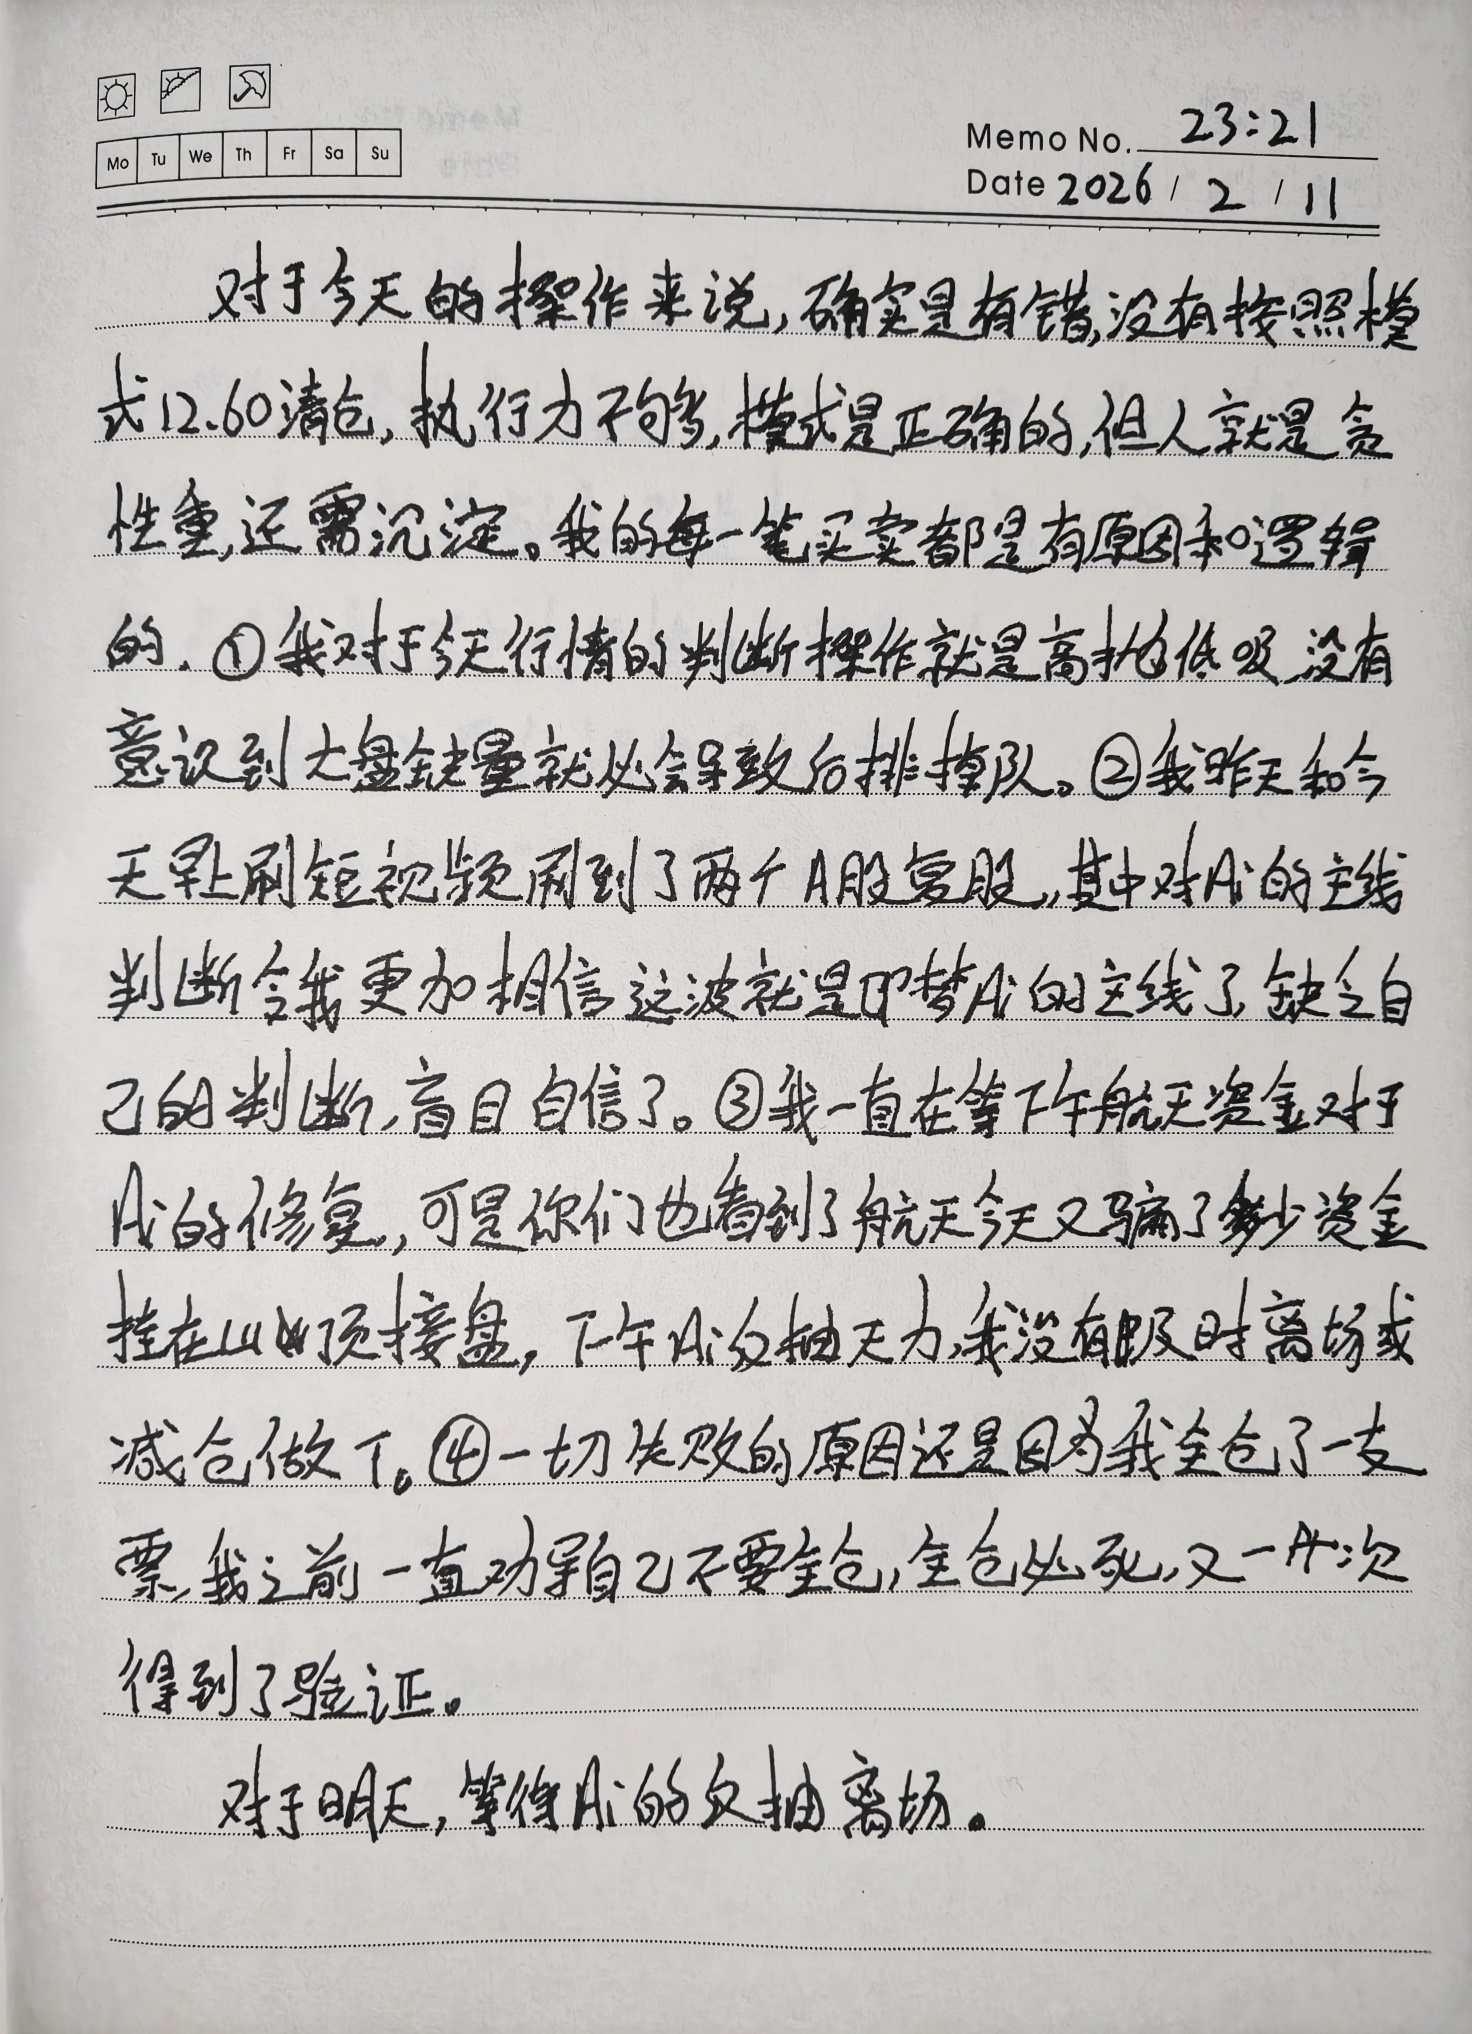 Memo No. 23:21
Mo Tu We Th Fr Sa Su
Date 2026 / 2 / 11
对于今天的操作来说,确实是有错,没有按照模
式12.60清仓,执行力不够,模式是正确的,但人就是贪
性重,还需沉淀。我的每一笔买卖都是有原因和逻辑
的.①我对于今天行情的判断操作就是高抛低吸,没有
意识到大盘缺量就必会导致后排掉队。②我昨天和今
天早上刷短视频刷到了两个A股复股,其中对Ai的主线
判断令我更加相信这波就是即梦Ai的主线了,缺乏自
己的判断,盲目自信了。③我一直在等下午航天资金对于
Ai的修复,可是你们也看到了航天今天又骗了多少资金
挂在山顶接盘,下午Ai反抽无力,我没有及时离场或
减仓做T。④一切失败的原因还是因为我全仓了一支
票,我之前一直劝导自己不要全仓,全仓必死,又一次
得到了验证。
对于明天,等待Ai的反抽离场。